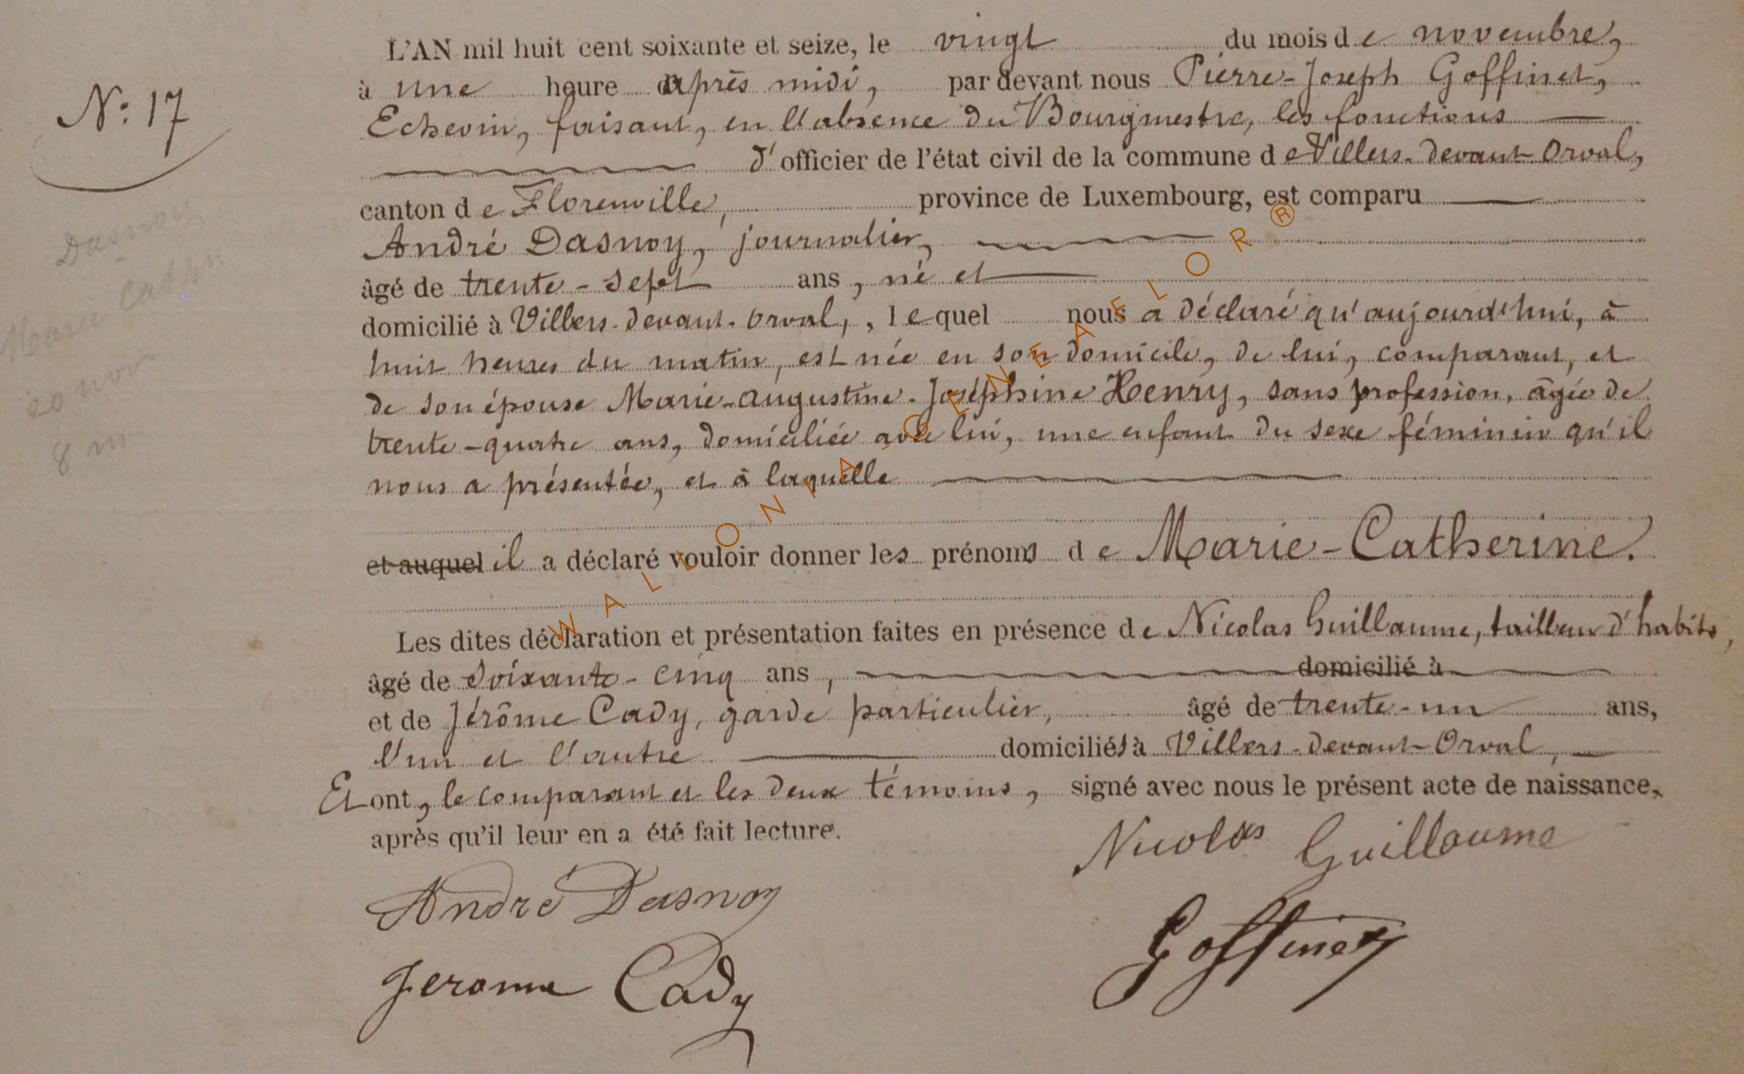 L'AN mil huit cent soixante et seize, le vingt du mois de novembre,
à une heure après midi, par devant nous Pierre-Joseph Goffinet,
N°: 17
Echevin, faisant, en l'absence du Bourgmestre, les fonctions
d'officier de l'état civil de la commune de Villers-devant-Orval,
canton de Florenville, province de Luxembourg, est comparu
André Dasnoy, journalier,
Dasnoy
Marie Cathn
20 nov
8 m
âgé de trente-sept ans, né et
domicilié à Villers-devant-Orval, , lequel nous a déclaré qu'aujourd'hui, à
huit heures du matin, est née en son domicile, de lui, comparant, et
de son épouse Marie-Augustine-Joséphine Henry, sans profession, âgée de
trente-quatre ans, domiciliée avec lui, une enfant du sexe féminin qu'il
nous a présentée, et à laquelle
et auquel il a déclaré vouloir donner les prénoms de Marie-Catherine.
Les dites déclaration et présentation faites en présence de Nicolas Guillaume, tailleur d'habits,
âgé de soixante-cinq ans, domicilié à
et de Jérôme Cady, garde particulier, âgé de trente-un ans,
l'un et l'autre domiciliés à Villers-devant-Orval,
Et ont, le comparant et les deux témoins, signé avec nous le présent acte de naissance,
après qu'il leur en a été fait lecture.
Nicolas Guillaume
André Dasnoy
Goffinet
Jerome Cady
WALLONIA-GENEAFLOR®